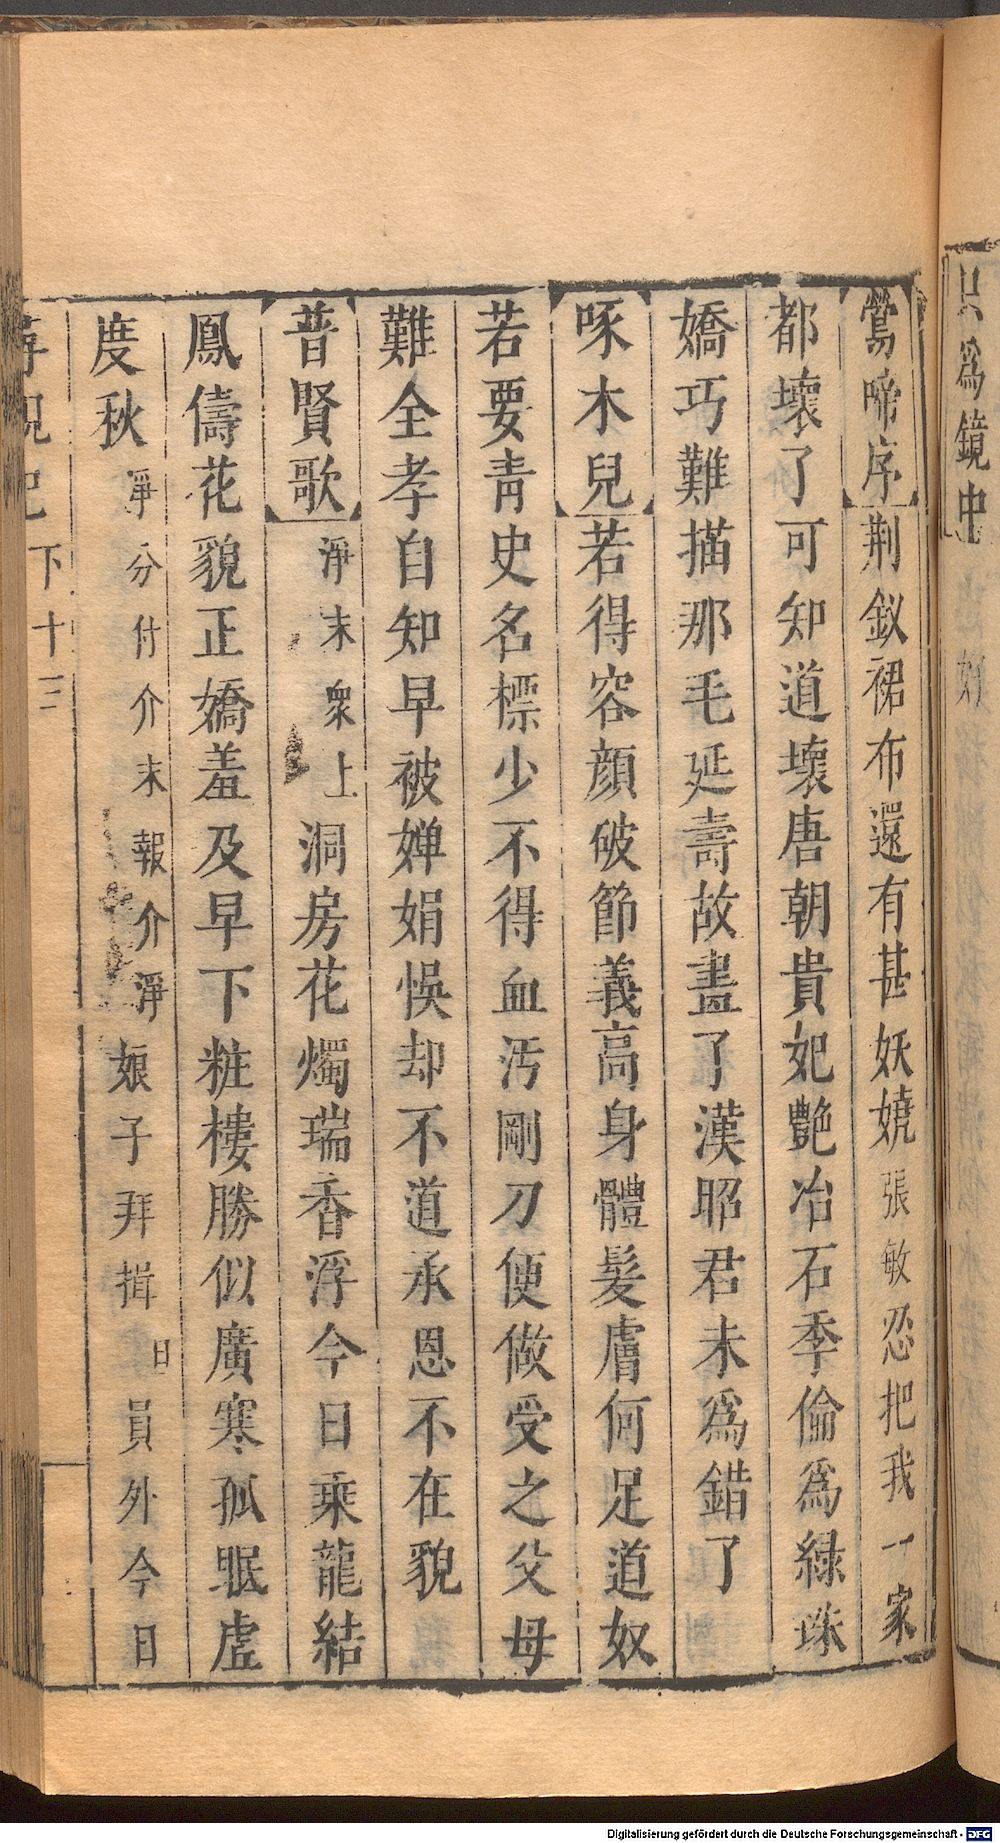 只爲鏡中
鶯啼序荆釵裙布還有甚妖嬈張敏忍把我一家
都壞了可知道壞唐朝貴妃艷冶石季倫爲綠珠
嬌巧難描那毛延壽故畫了漢昭君未爲錯了
啄木兒若得容顔破節義高身體髮膚何足道奴
若要靑史名標少不得血汚剛刀便做受之父母
難全孝自知早被嬋娟悞却不道承恩不在貌
普賢歌淨末衆上洞房花燭瑞香浮今日乘龍結
鳳儔花貌正嬌羞及早下粧樓勝似廣寒孤眠虚
度秋淨分付介末報介淨娘子拜揖旦員外今日
尋親記 下 十三
Digitalisierung gefördert durch die Deutsche Forschungsgemeinschaft - DFG